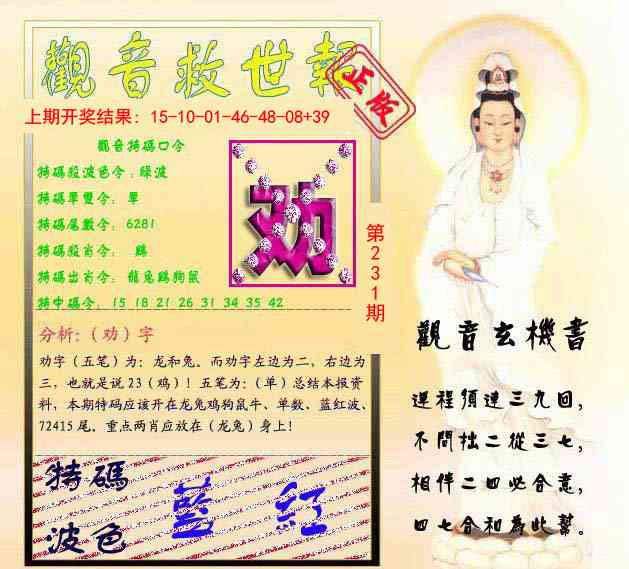 觀音救世報
正版
上期开奖结果：15-10-01-46-48-08+39
觀音特碼口令
特碼殺波色令：綠波
特碼單雙令：單
特碼尾數令：6281
特碼殺肖令：鷄
特碼出肖令：龍兔鷄狗鼠
特中碼令：15 18 21 26 31 34 35 42
劝
第231期
分析：（劝）字
劝字（五笔）为：龙和兔。而劝字左边为二，右边为
三，也就是说 23（鸡）！五笔为：（单）总结本报资
料，本期特码应该开在龙兔鸡狗鼠牛、单数、蓝红波、
72415 尾。重点两肖应放在（龙兔）身上！
特碼
波色
藍 紅
觀音玄機書
運程須連三九回，
不問拙二從三七，
相伴二四必合意，
四七合和為此幫。